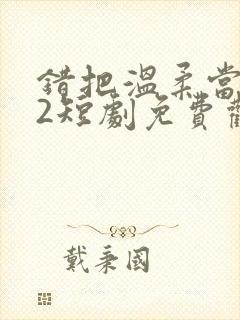 錯把溫柔當
2短劇免費
戴秉國